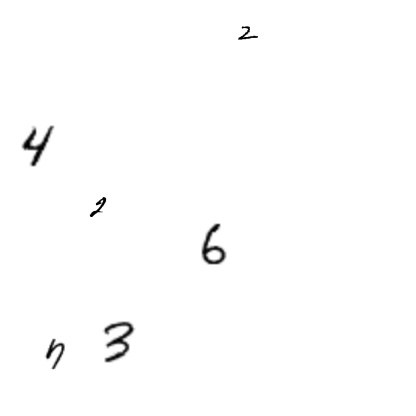 2
4
2
6
n 3